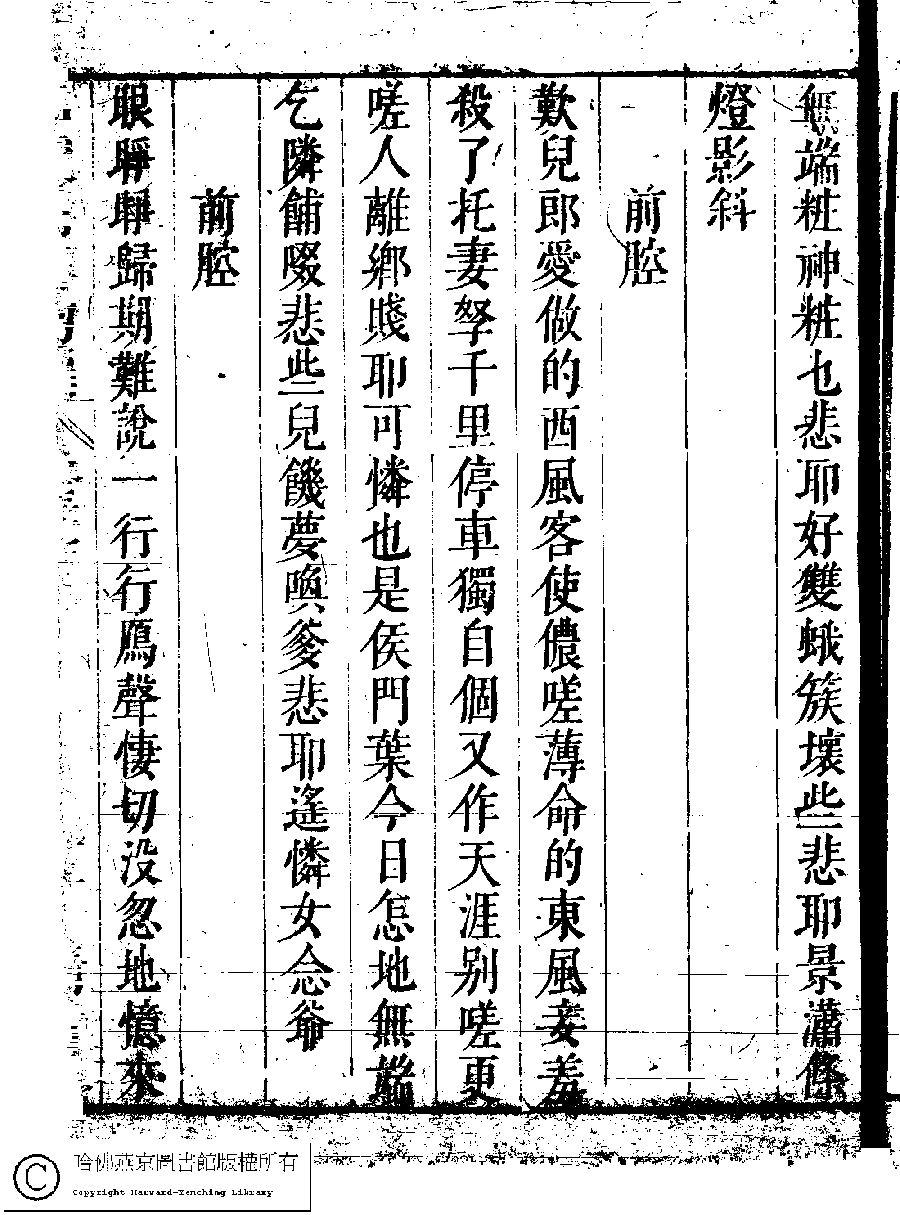 無端粧神粧也悲耶好雙蛾簇壞些悲耶景瀟條
燈影斜
前腔
歎兒郎愛做的西風客使儂嗟薄命的東風妾羞
殺了拕妻孥千里停車獨自個又作天涯别嗟更
嗟人離鄉賤耶可憐也是侯門葉今日怎地無端
乞隣餔啜悲些兒饑夢喚爹悲耶遙憐女念爺
前腔
眼睜睜歸期難說一行行鴈聲悽切没忽地憶來
哈佛燕京圖書館版權所有
Copyright Harvard-Yenching Library